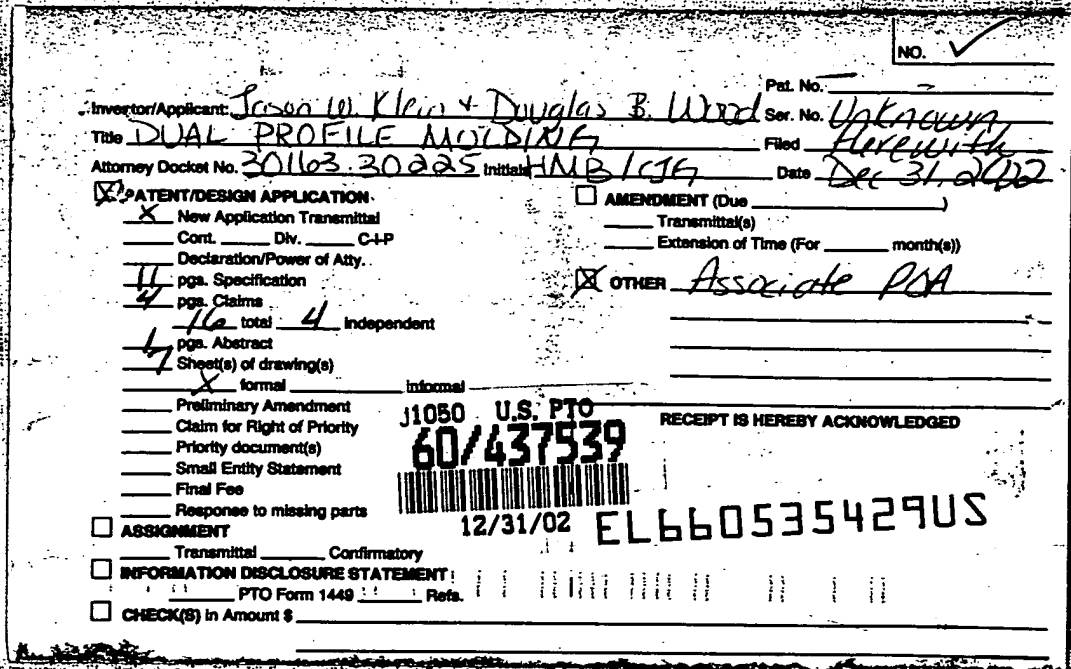 NO. ✓
Pat. No. -
Inventor/Applicant: Jason W. Klein + Douglas B. Wood Ser. No. Unknown
Title DUAL PROFILE MOLDING Filed Herewith
Attorney Docket No. 30163.30225 Initials HMB/CJG Date Dec 31, 2002
☒ PATENT/DESIGN APPLICATION
X New Application Transmittal
Cont. Div. C-I-P
Declaration/Power of Atty.
11 pgs. Specification
4 pgs. Claims
16 total 4 independent
1 pgs. Abstract
7 Sheet(s) of drawing(s)
X formal informal
Preliminary Amendment
Claim for Right of Priority
Priority document(s)
Small Entity Statement
Final Fee
Response to missing parts
☐ ASSIGNMENT
Transmittal Confirmatory
☐ INFORMATION DISCLOSURE STATEMENT
PTO Form 1449 Refs.
☐ CHECK(S) in Amount $
☐ AMENDMENT (Due )
Transmittal(s)
Extension of Time (For month(s))
☒ OTHER Associate POA
J1050 U.S. PTO
60/437539
12/31/02
RECEIPT IS HEREBY ACKNOWLEDGED
EL660535429US